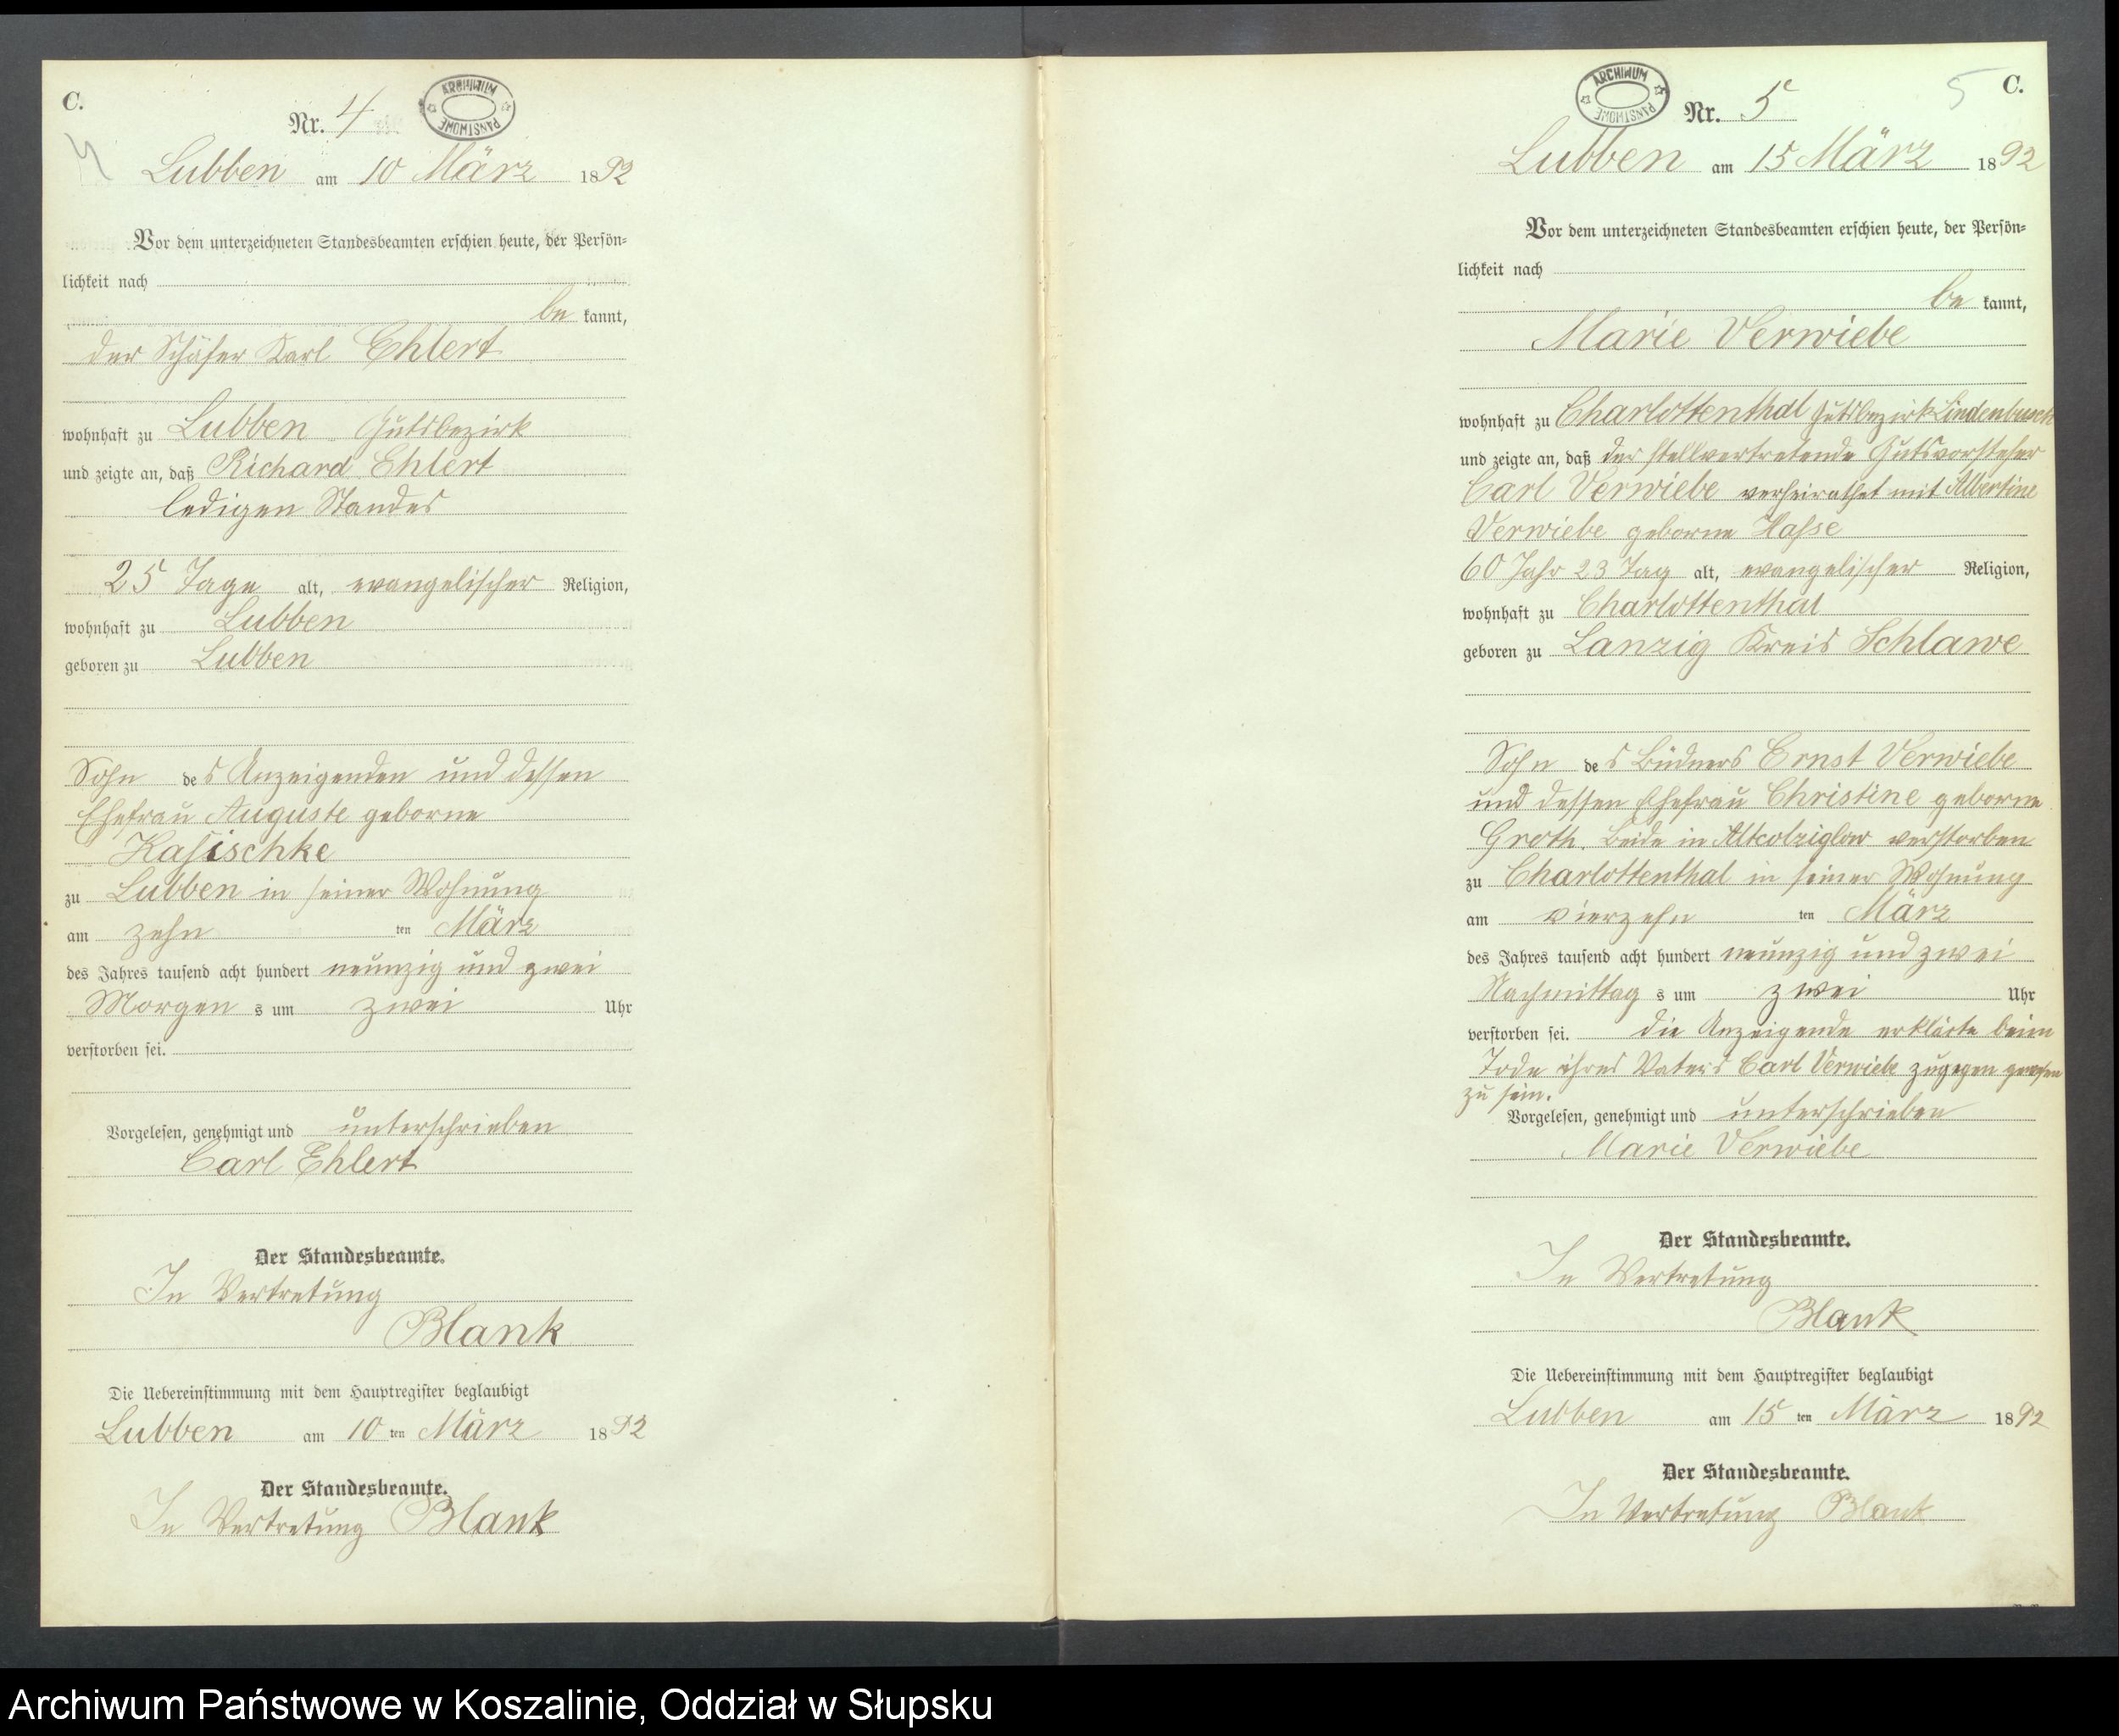 C.
Nr. 4
ARCHIWUM PAŃSTWOWE
4
Lubben am 10 März 1892
Vor dem unterzeichneten Standesbeamten erschien heute, der Persön=
lichkeit nach
be kannt,
der Schäfer Karl Ehlert
wohnhaft zu Lubben Gutsbezirk
und zeigte an, daß Richard Ehlert
ledigen Standes
25 Tage alt, evangelischer Religion,
wohnhaft zu Lubben
geboren zu Lubben
Sohn des Anzeigenden und dessen
Ehefrau Auguste geborne
Kasischke
zu Lubben in seiner Wohnung
am zehn ten März
des Jahres tausend acht hundert neunzig und zwei
Morgen s um zwei Uhr
verstorben sei.
Vorgelesen, genehmigt und unterschrieben
Carl Ehlert
Der Standesbeamte.
In Vertretung
Blank
Die Uebereinstimmung mit dem Hauptregister beglaubigt
Lubben am 10 ten März 1892
Der Standesbeamte.
In Vertretung Blank
ARCHIWUM PAŃSTWOWE
Nr. 5
5 C.
Lubben am 15 März 1892
Vor dem unterzeichneten Standesbeamten erschien heute, der Persön=
lichkeit nach
be kannt,
Marie Verwiebe
wohnhaft zu Charlottenthal Gutsbezirk Lindenbusch
und zeigte an, daß der stellvertretende Gutsvorsteher
Carl Verwiebe verheirathet mit Albertine
Verwiebe geborne Hasse
60 Jahr 23 Tag alt, evangelischer Religion,
wohnhaft zu Charlottenthal
geboren zu Lanzig Kreis Schlawe
Sohn des Büdners Ernst Verwiebe
und dessen Ehefrau Christine geborne
Groth. Beide in Altcolziglow verstorben
zu Charlottenthal in seiner Wohnung
am vierzehn ten März
des Jahres tausend acht hundert neunzig und zwei
Nachmittag s um zwei Uhr
verstorben sei. Die Anzeigende erklärte beim
Tode ihres Vaters Carl Verwiebe zugegen gewesen
zu sein.
Vorgelesen, genehmigt und unterschrieben
Marie Verwiebe
Der Standesbeamte.
In Vertretung
Blank
Die Uebereinstimmung mit dem Hauptregister beglaubigt
Lubben am 15 ten März 1892
Der Standesbeamte.
In Vertretung Blank
Archiwum Państwowe w Koszalinie, Oddział w Słupsku